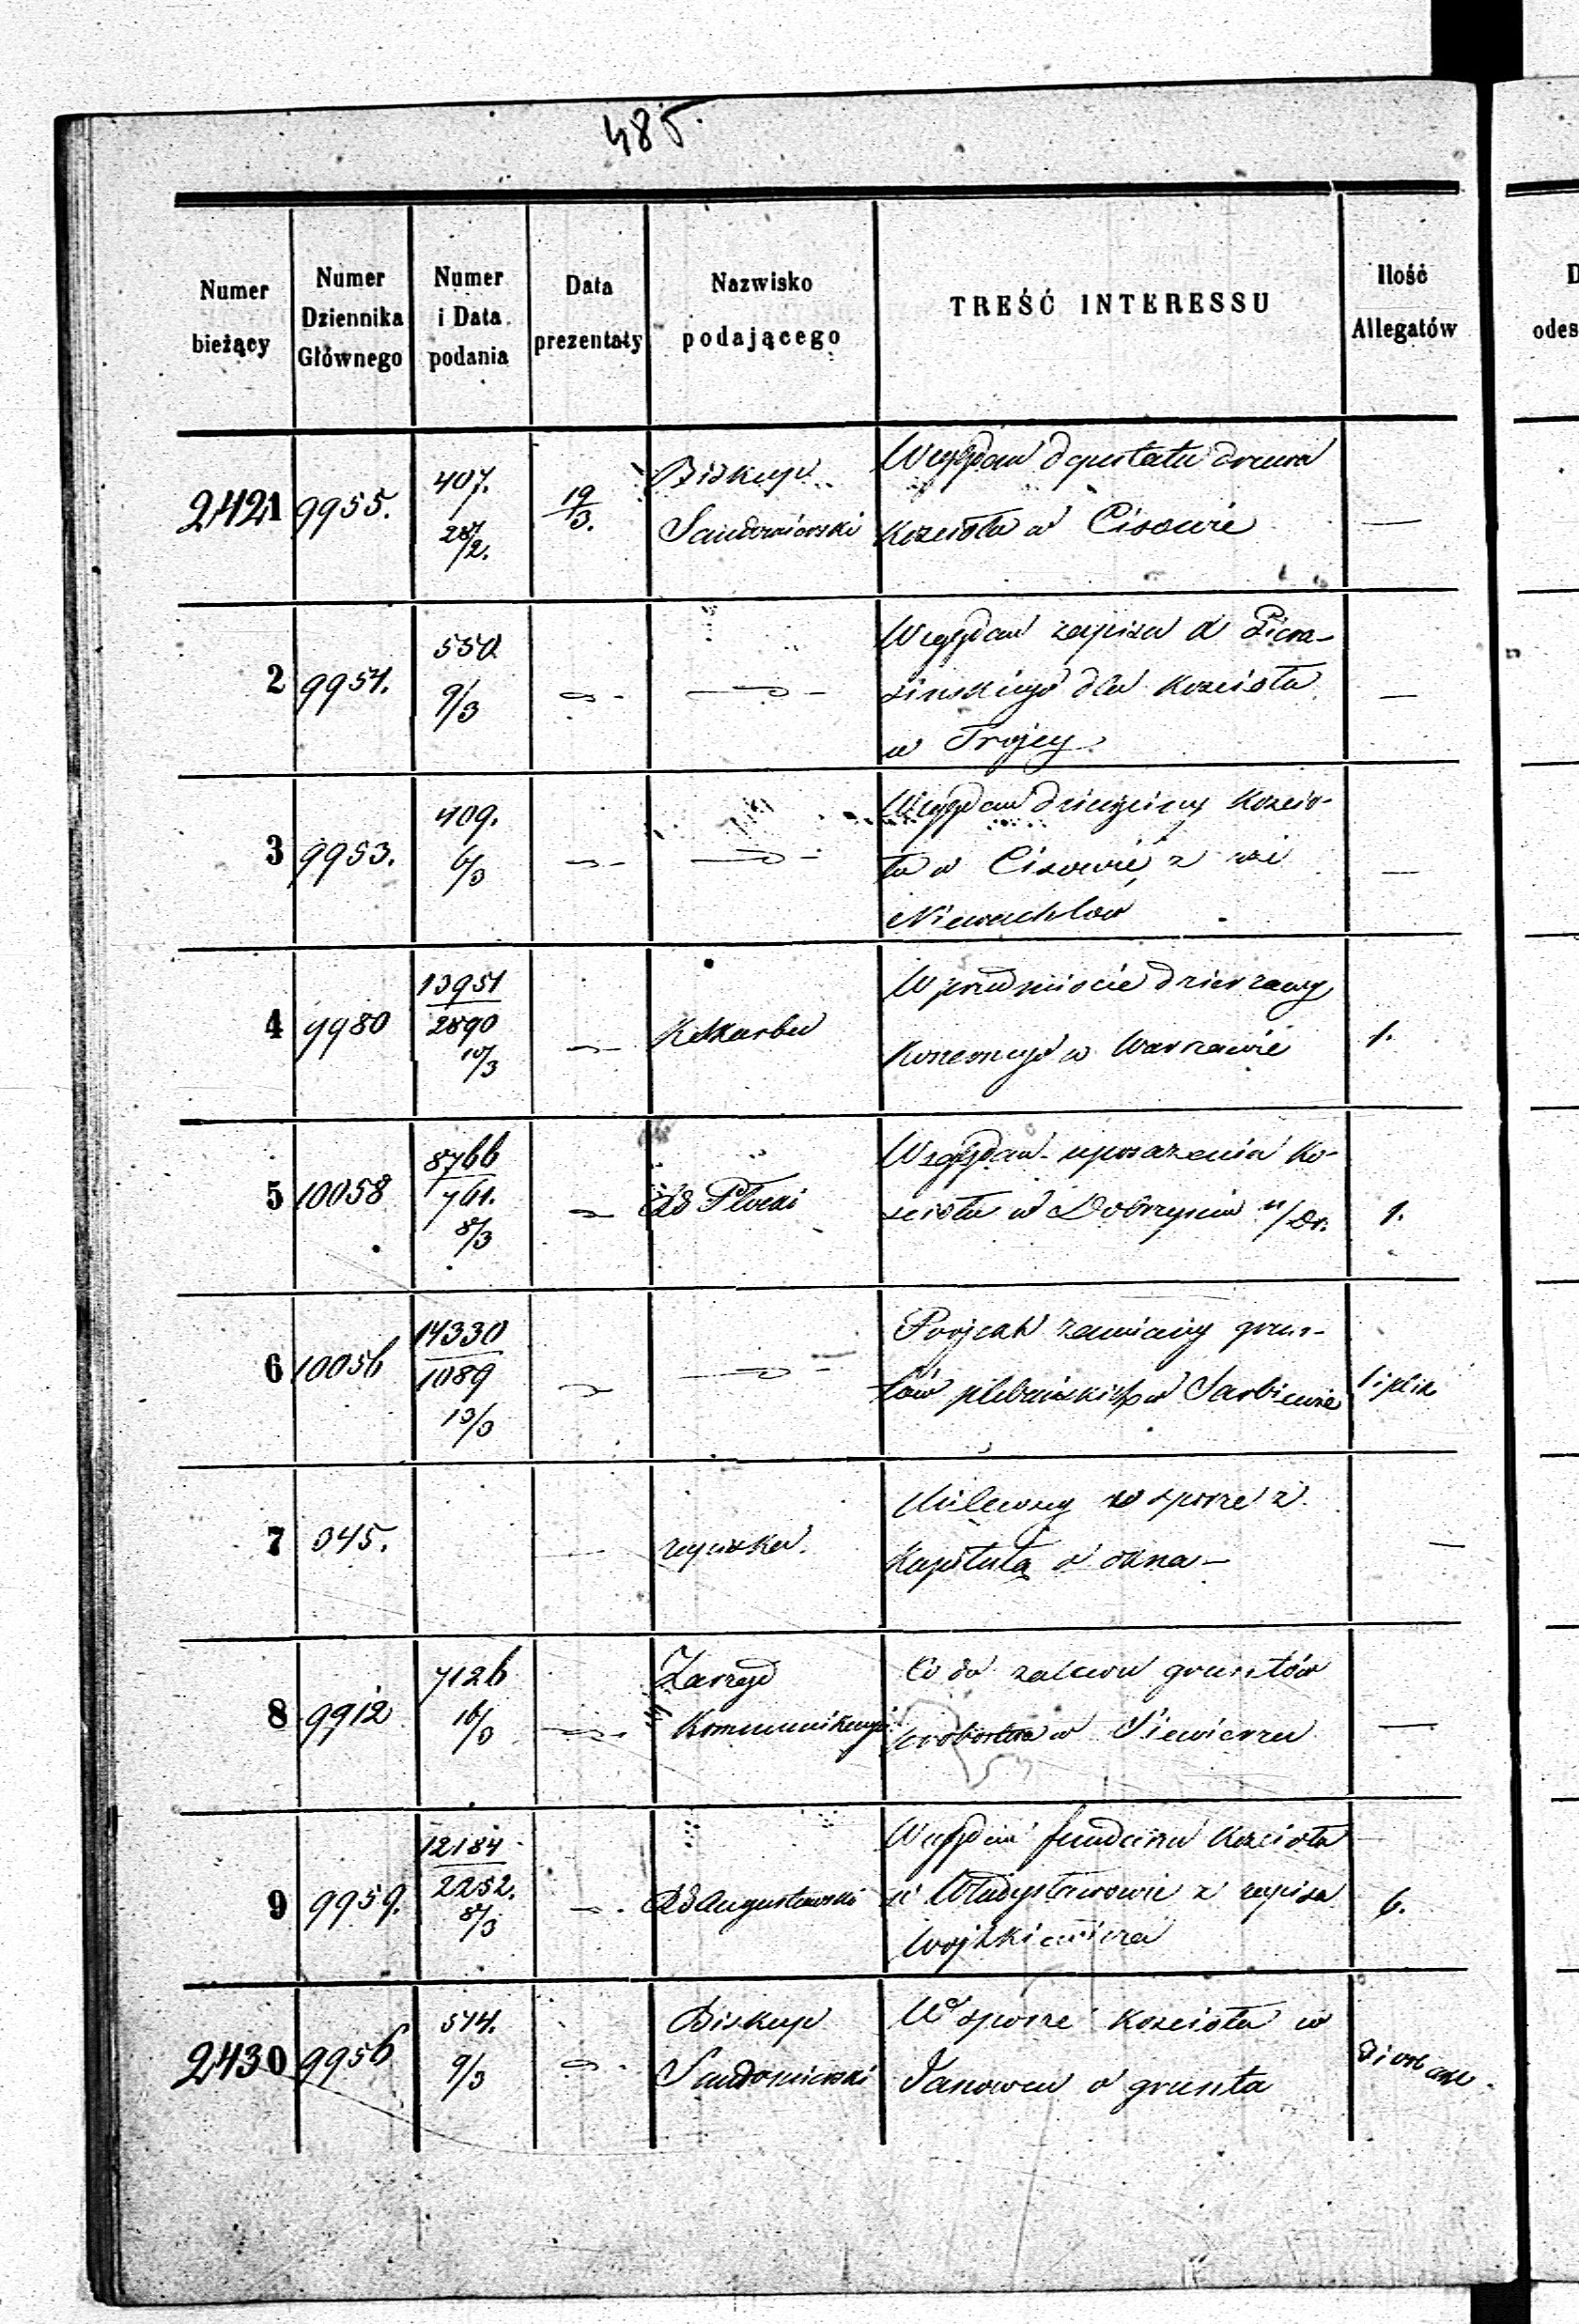 485.
Numer bieżący
Numer Dziennika Głównego
Numer i Data podania
Data prezentaty
Nazwisko podającego
TREŚĆ INTERESSU
Ilość Allegatów
D
odes
2421 9955. 407. 28/2. 19/3. Biskup Sandomierski
Względem deputatu drzewa
Kościoła w Cisowie —
2 9954. 550 9/3
Względem zapisu
dla Kościoła
w Trójcy —
3 9953. 409. 6/3
Względem dziesięciny Kościo-
ła w Cisowie z wsi
Niewachlów —
4 9980 13951/2890 10/3 K Skarbu
W przedmiocie dzierzawy
w Warszawie 1.
5 10058 8766/761. 8/3 Płocki
Względem uposazenia Ko-
ścioła w Dobrzyniu n/Dr. 1.
6 10056 14330/1089 13/3
Projekt zamiany grun-
tów plebańskich w Sarbiewie 1 i plik
7 345.
w sporze z
Kapitułą o okna — —
8 9912 7126 16/3 Zarząd Kommunikacyi
Co do zalewu gruntów
probostwa w Siewierzu —
9 9959. 12184/2252. 8/3 Augustowski
Względem funduszu Kościoła
w Władysławowie z zapisu
Wojtkiewicza 6.
2430 9956 514. 9/3 Biskup Sandomierski
W sporze Kościoła w
Janowcu o grunta